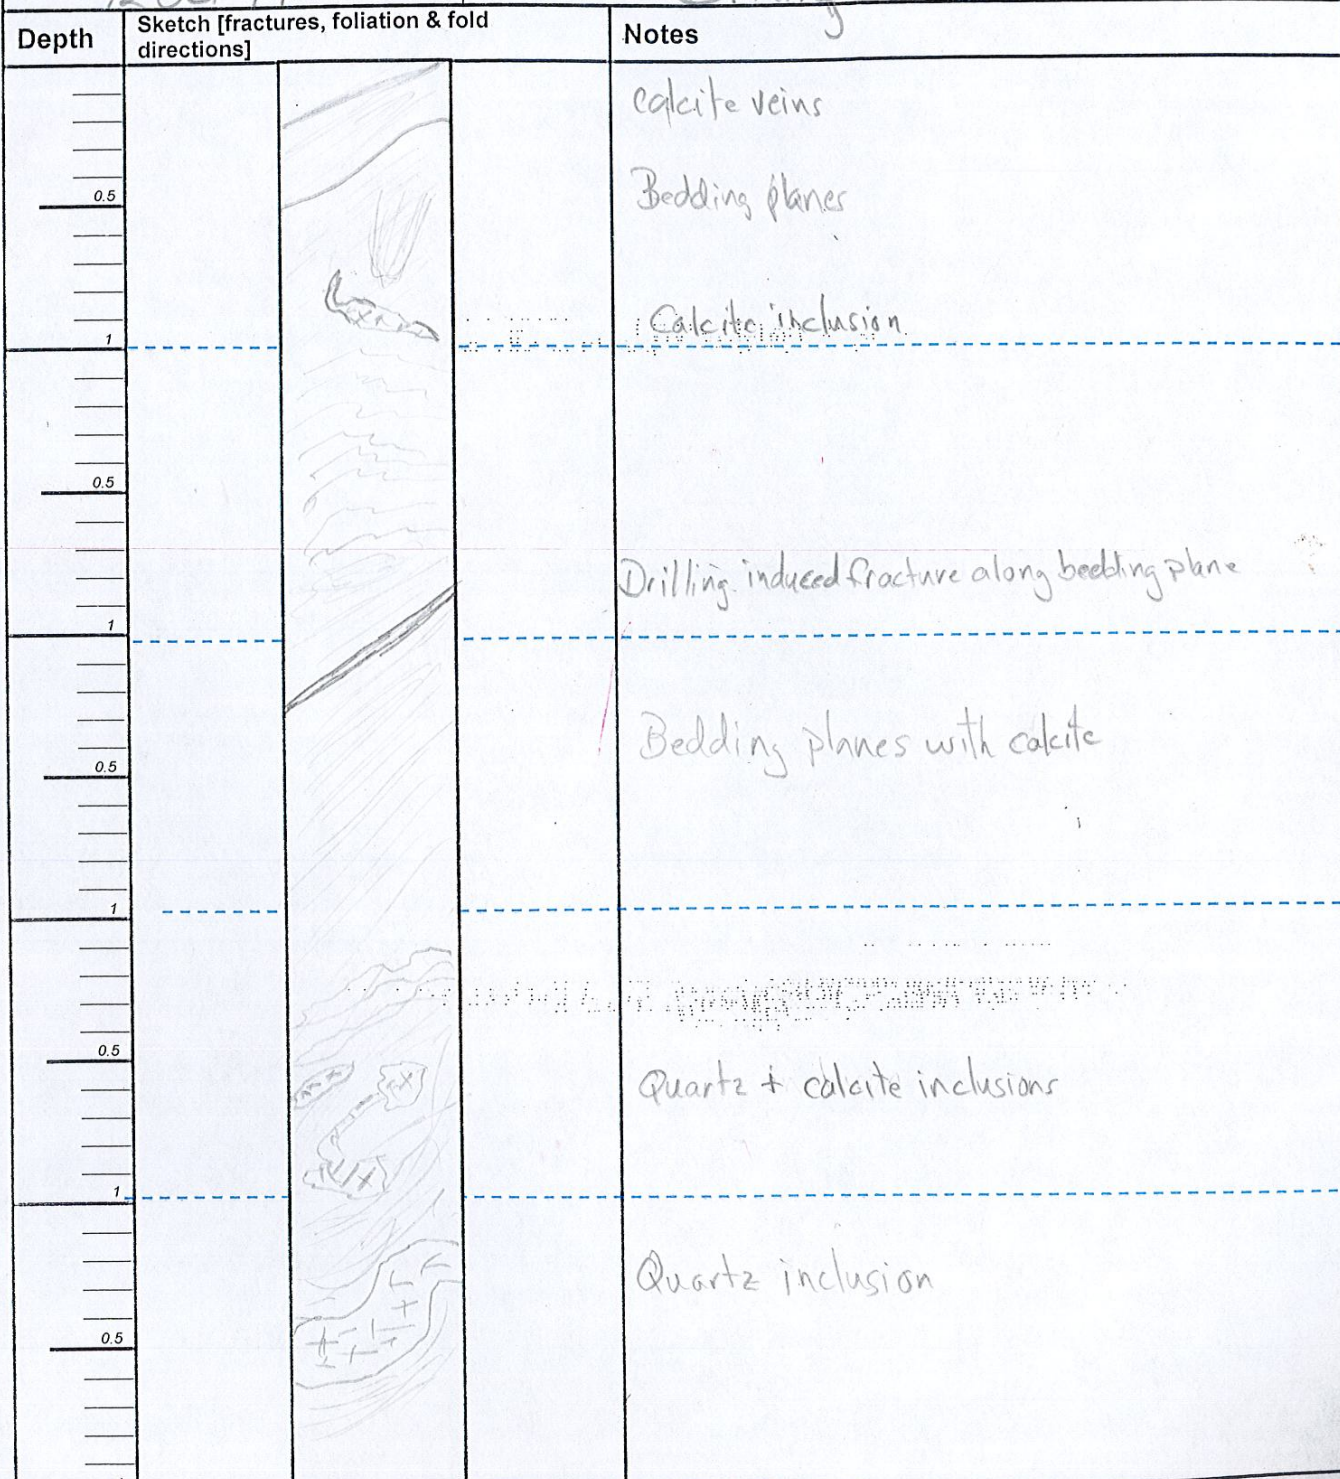 Depth
Sketch [fractures, foliation & fold
directions]
Notes
Calcite veins
0.5
Bedding planes
Calcite inclusion
1
0.5
Drilling induced fracture along beebling plane
1
Bedding planes with calcite
0.5
1
0.5
Quartz + calcite inclusions
1
Quartz inclusion
0.5